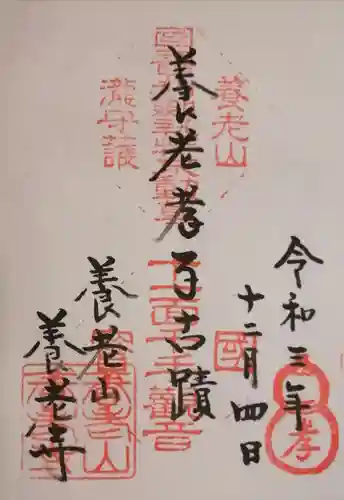 令和三年
十二月四日
養老山
養老孝子古蹟
瀧守護
十一面千手観音
養老山
養老寺
孝